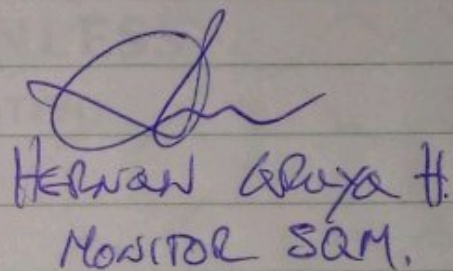 HERNAN ARAYA H.
MONITOR SQM.